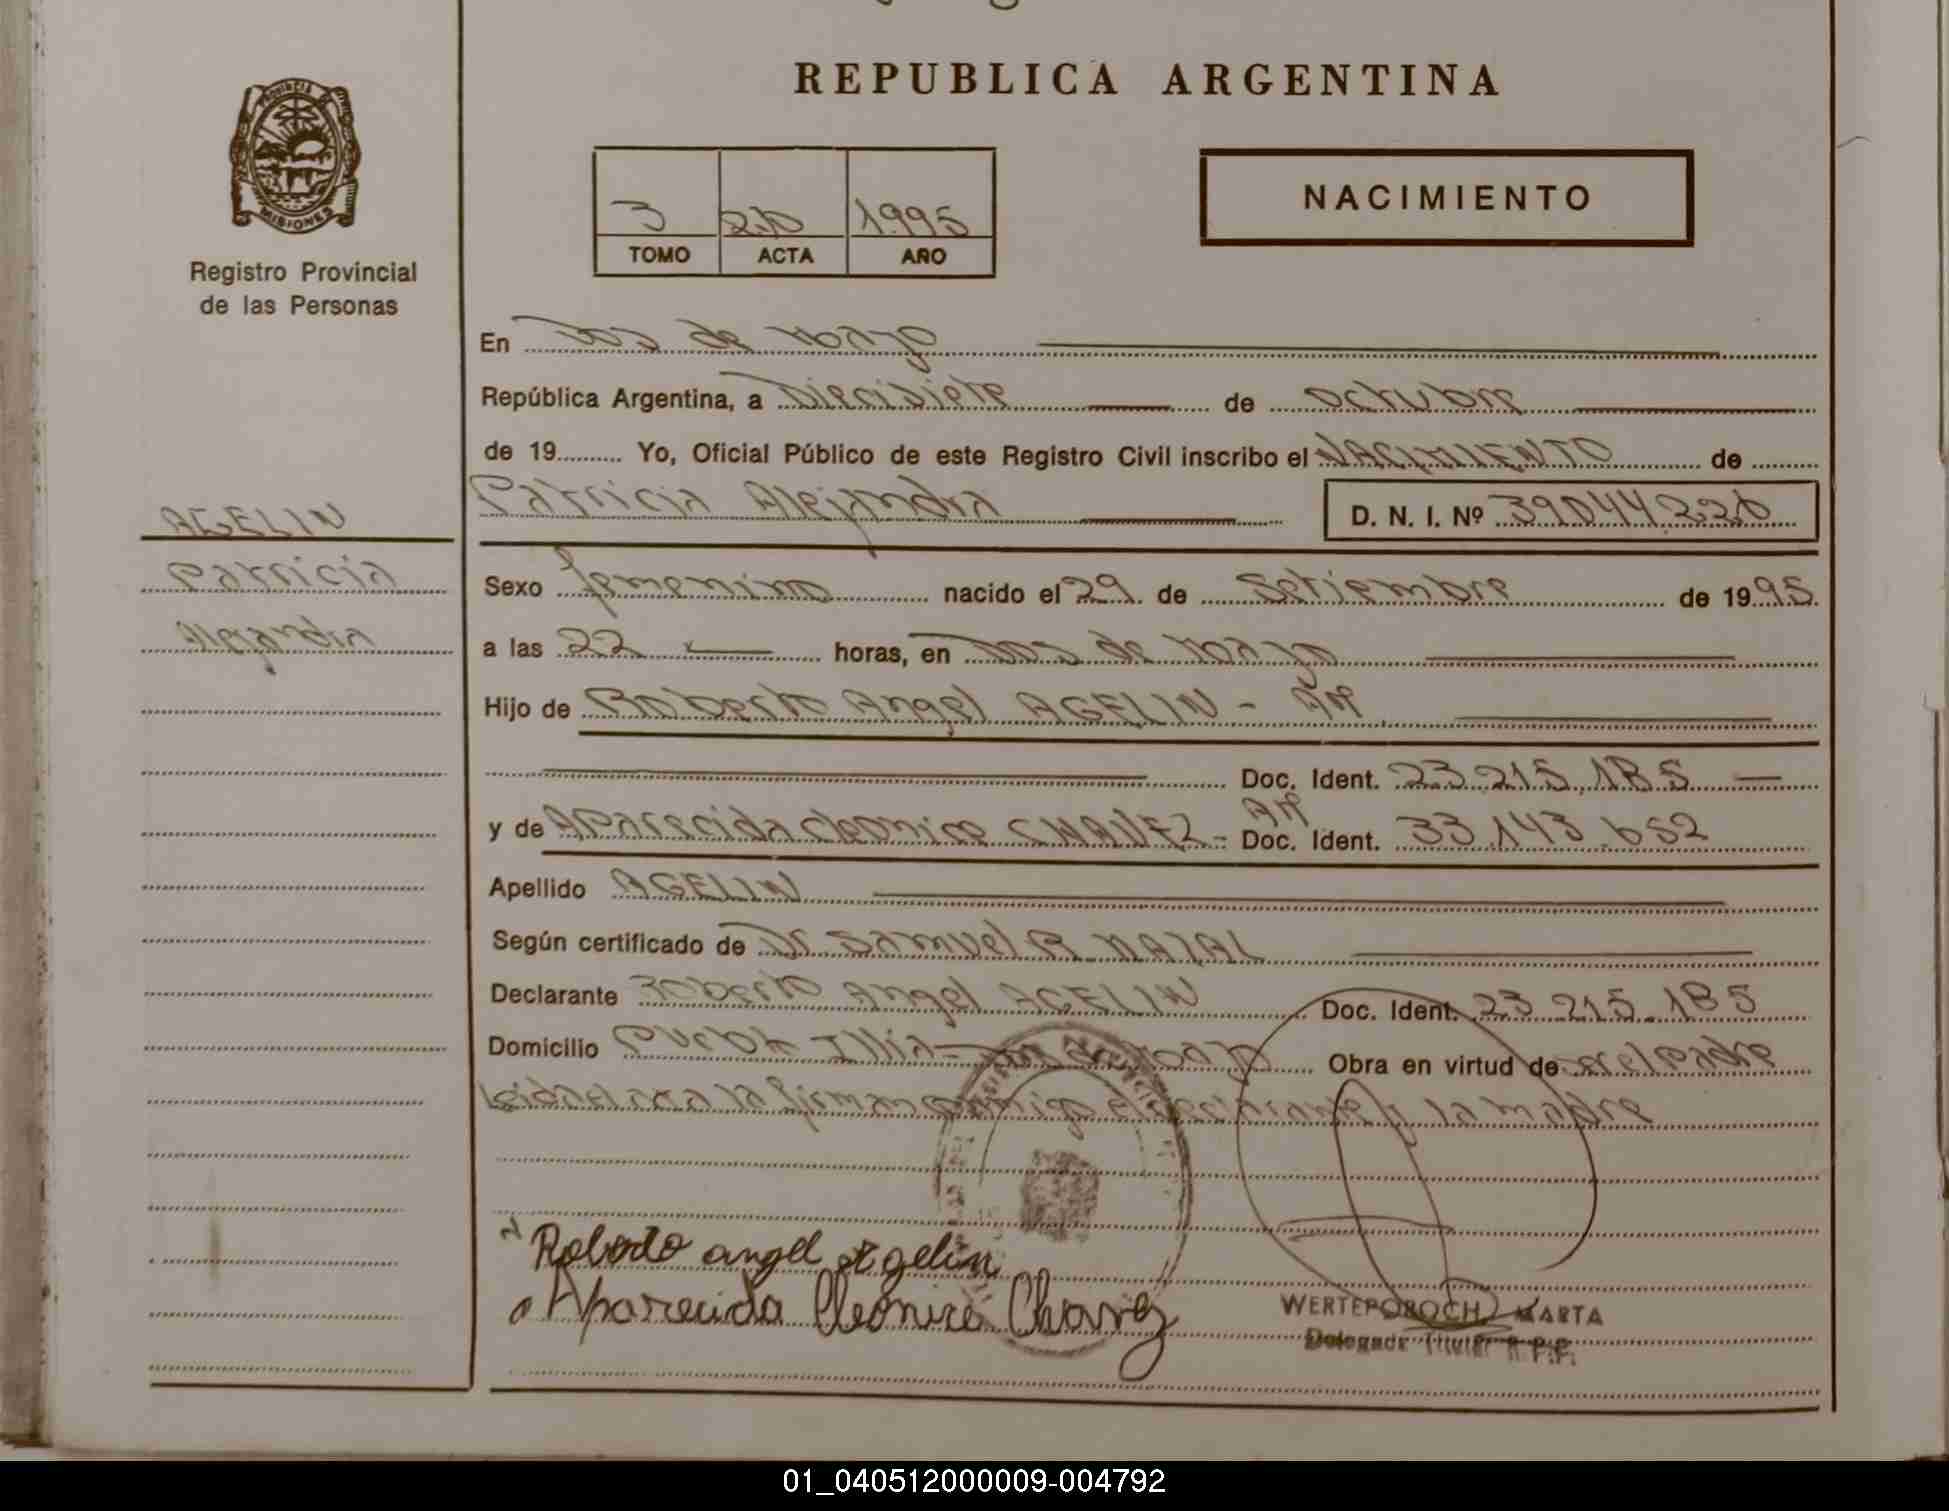 REPUBLICA ARGENTINA
PROVINCIA DE
MISIONES
Registro Provincial
de las Personas
3 210 1995
TOMO ACTA AÑO
NACIMIENTO
En Dos de Mayo
República Argentina, a Diecisiete de octubre
de 19.......... Yo, Oficial Público de este Registro Civil inscribo el NACIMIENTO de
Patricia Alejandra D. N. I. Nº 39044220
AGELIN
Patricia
Alejandra
Sexo femenino nacido el 29 de Setiembre de 1995
a las 22 horas, en Dos de Mayo
Hijo de Roberto Angel AGELIN -
Doc. Ident. 23.215.185
y de Aparecida Cleonice CHAVEZ - Doc. Ident. 33.143.652
Apellido AGELIN
Según certificado de Dr. Samuel R. NATAL
Declarante Roberto Angel AGELIN Doc. Ident. 23.215.185
Domicilio Illia - Dos de Mayo Obra en virtud de ser el padre
Leida el acta la firman conmigo el declarante y la madre
Roberto angel Agelin
Aparecida Cleonice Chavez
WERTEPOROCH, MARTA
Delegada Titular R.P.P.
01_040512000009-004792